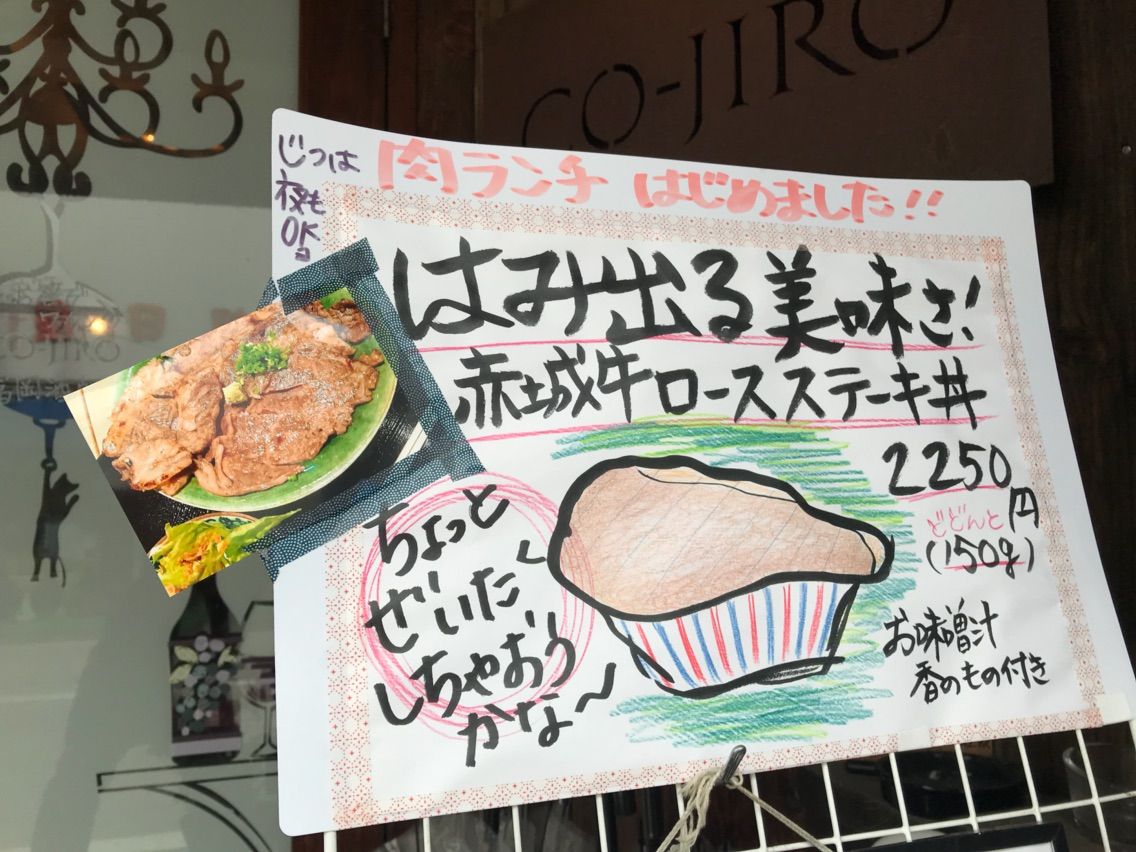 CO-JIRO
じつは
夜も
OKョ
肉ランチ はじめました!!
はみ出る美味さ!
赤城牛ロースステーキ丼
2250円
どどんと
(150g)
お味噌汁
香のもの付き
ちょっと
ぜいたく
しちゃおう
かな〜
CO-JIRO